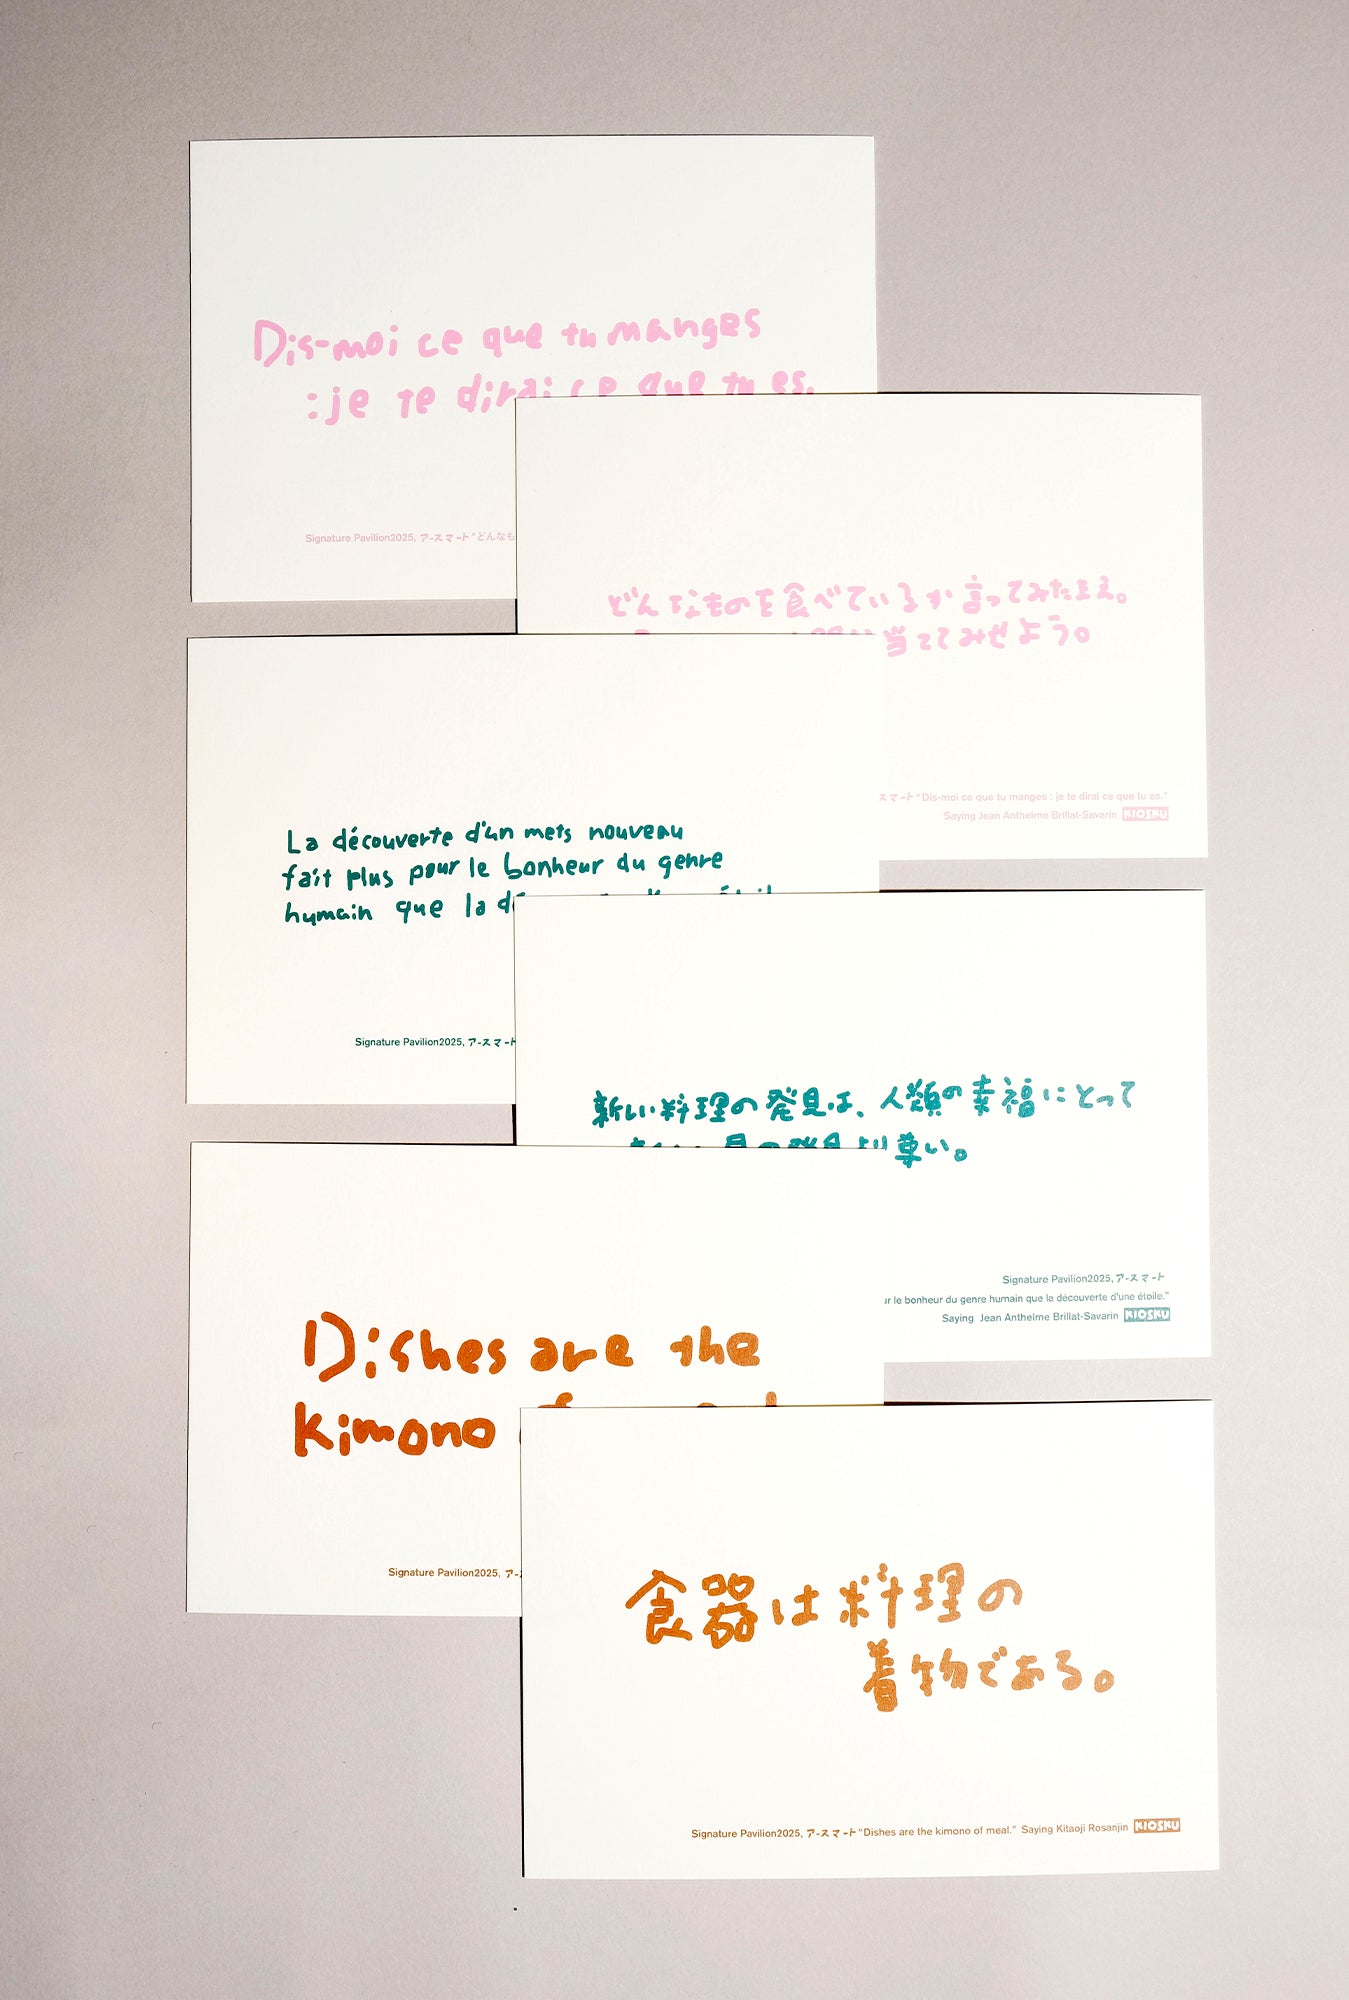 Dis-moi ce que tu manges
: je te dirai ce que tu es.
Signature Pavilion2025, アースマート “どんなも
どんなものを食べているか言ってみたまえ。
当ててみせよう。
スマート “Dis-moi ce que tu manges : je te dirai ce que tu es.”
Saying Jean Anthelme Brillat-Savarin KIOSKU
La découverte d'un mets nouveau
fait plus pour le bonheur du genre
humain que la dé
Signature Pavilion2025, アースマート
新しい料理の発見は、人類の幸福にとって
より尊い。
Signature Pavilion2025, アースマート
ur le bonheur du genre humain que la découverte d'une étoile.”
Saying Jean Anthelme Brillat-Savarin KIOSKU
Dishes are the
kimono
Signature Pavilion2025, アース
食器は料理の
着物である。
Signature Pavilion2025, アースマート “Dishes are the kimono of meal.” Saying Kitaoji Rosanjin KIOSKU